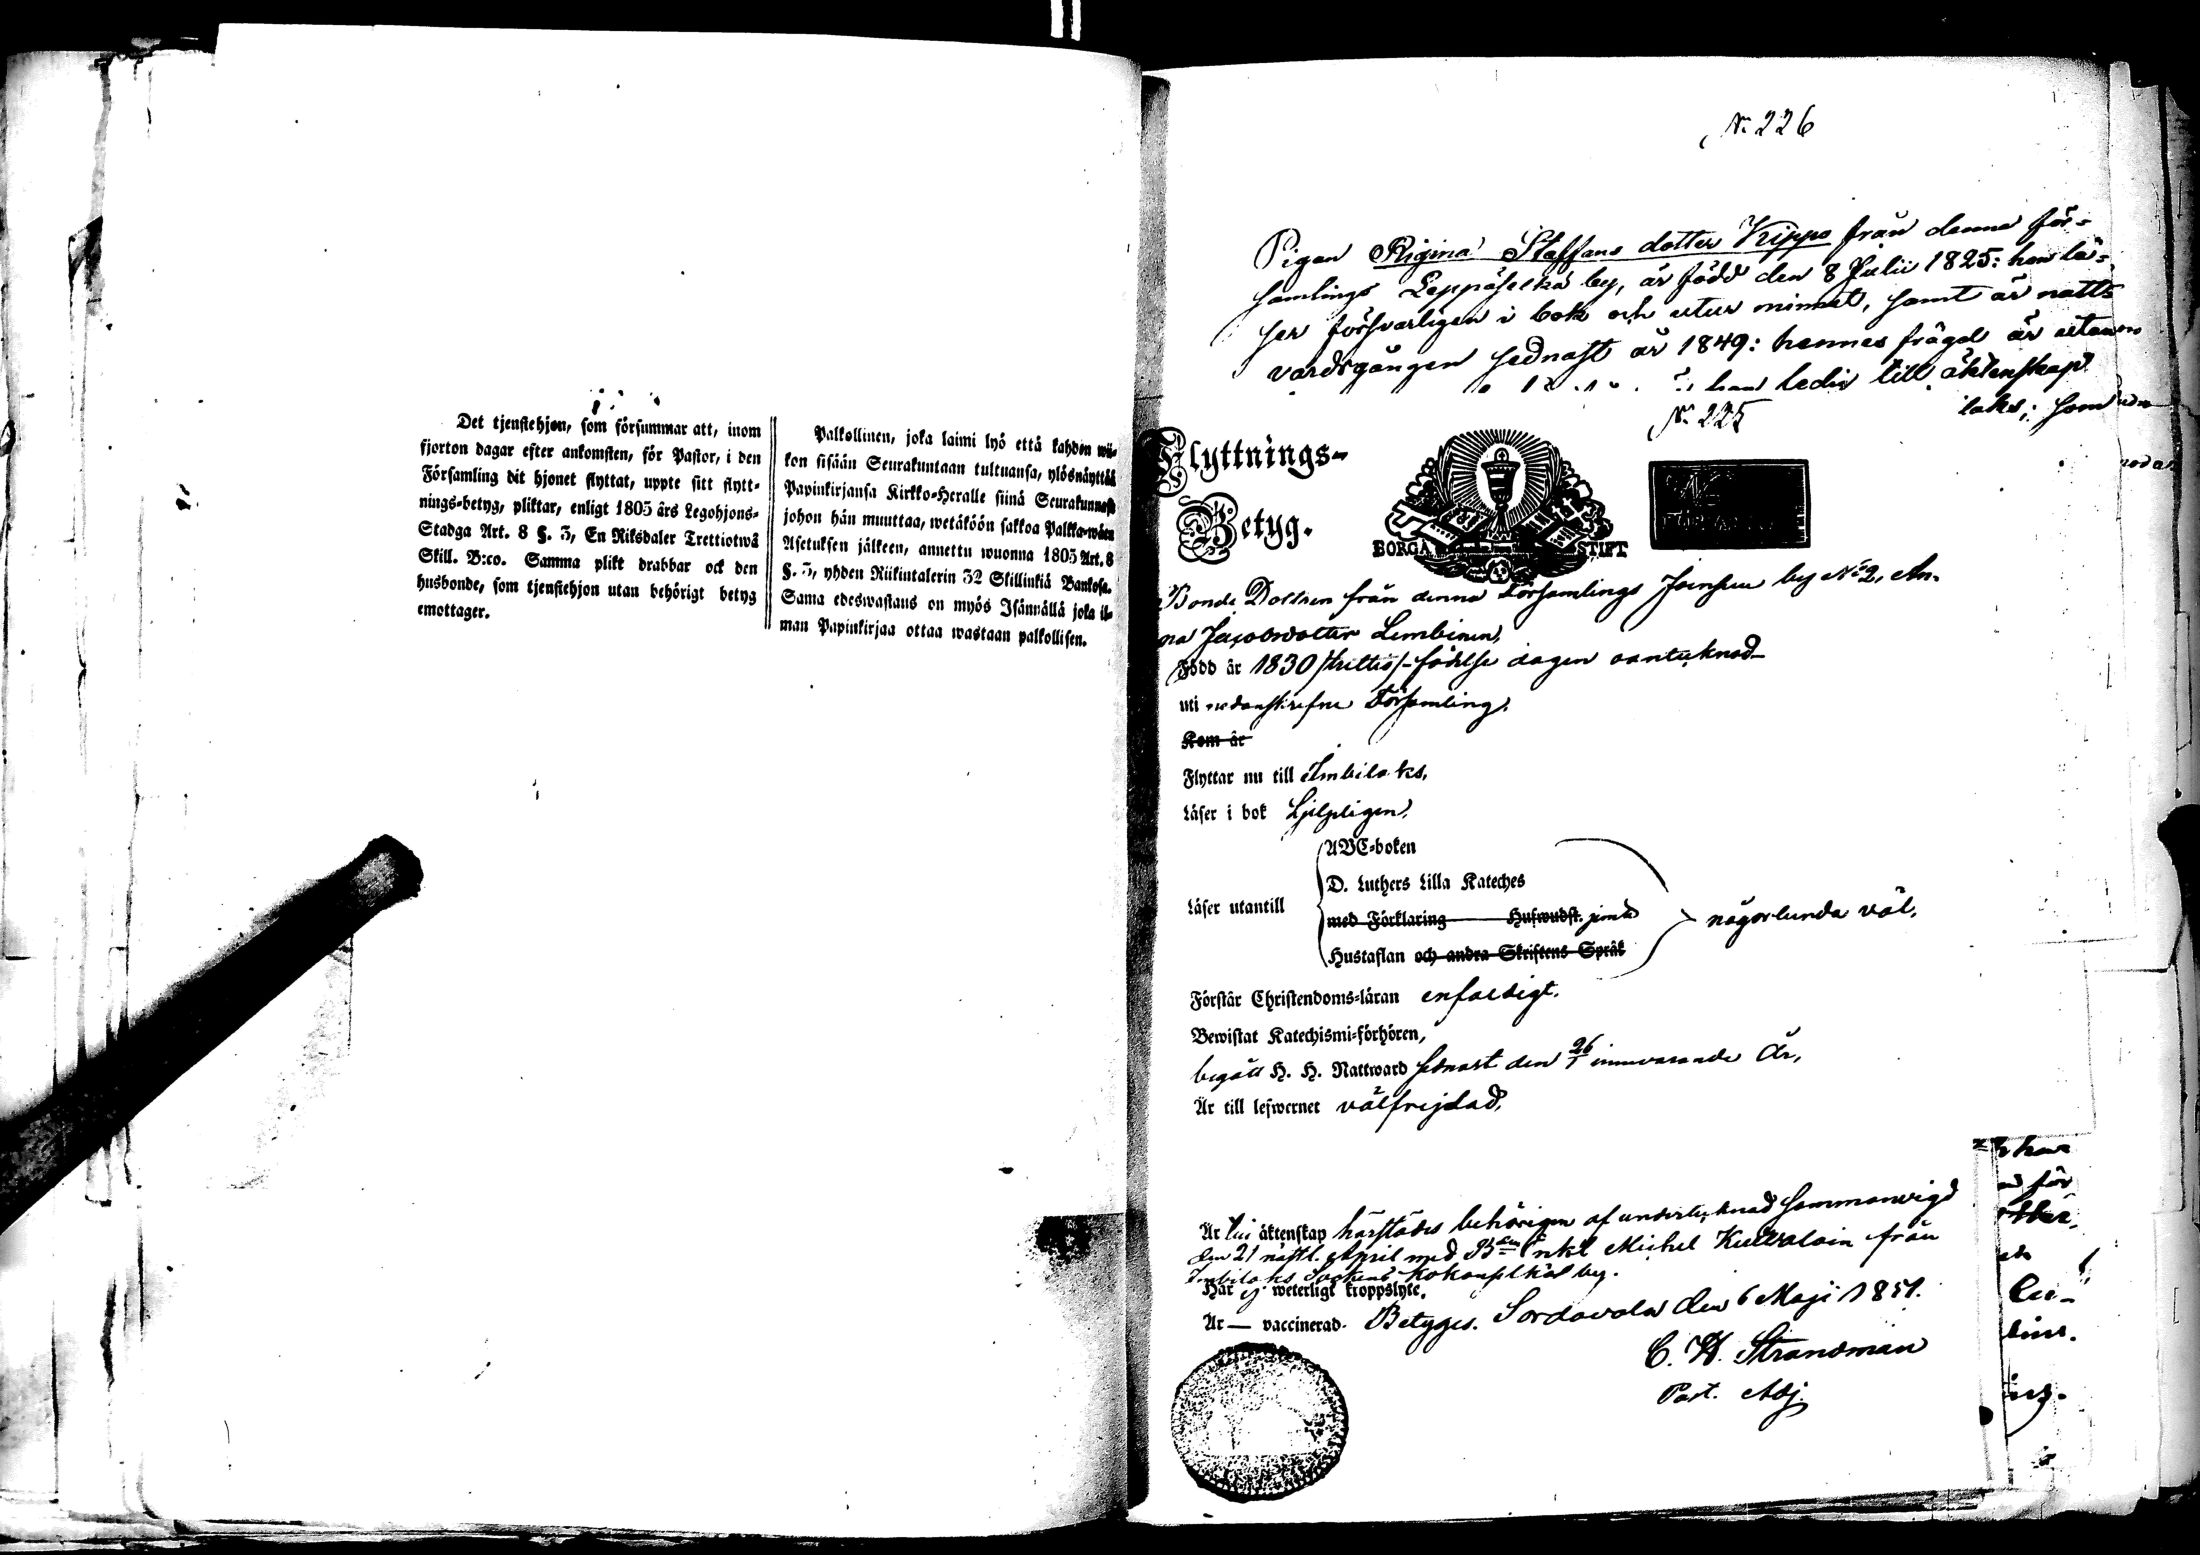 Det tjenstehjon, som försummar att, inom
fjorton dagar efter ankomsten, för Pastor, i den
Församling dit hjonet flyttat, uppte sitt flytt-
nings-betyg, pliktar, enligt 1805 års Legohjons-
Stadga Art. 8 §. 3, En Riksdaler Trettiotwå
Skill. B:co. Samma plikt drabbar ock den
husbonde, som tjenstehjon utan behörigt betyg
emottager.
Palkollinen, joka laimi lyö että kahden wii-
kon sisään Seurakuntaan tultuansa, ylösnäyttää
Papinkirjansa Kirkko-Heralle siinä Seurakunnassa
johon hän muuttaa, wetäköön sakkoa Palkka-wäen
Asetuksen jälkeen, annettu wuonna 1805 Art. 8
§. 3, yhden Riikintalerin 32 Skillinkiä Bankosa.
Sama edeswastaus on myös Isännällä joka il-
man Papinkirjaa ottaa wastaan palkollisen.
No 226
Pigan Regina Staffans dotter Kippo från denna för-
samlings Leppäselkä by, är född den 8 Julii 1825: hon lä-
ser försvarligen i bok och utur minnet, samt är natt-
vardsgången sednast år 1849: hennes frägd är utan
hon ledig till äktenskap
laks; som
No 225
Flyttnings-
Betyg.
BORGÅ STIFT
Bonde Dottren från denna Församlings Joensuu by No 2, An-
na Jacobsdotter Lembinen,
Född år 1830 /trettio/ - födelse dagen oantecknad
uti nedanskrefne Församling.
Kom år
Flyttar nu till Imbilaks,
Läser i bok Hjelpligen,
Läser utantill
ABC-boken
D. Luthers Lilla Kateches
med Förklaring Huswudst. jemte
Hustaflan och andra Skriftens Språk
någorlunda väl,
Förstår Christendoms-läran enfaldigt.
Bewistat Katechismi-förhören,
begått H. H. Nattward sednast den 26/1 innevarande År,
Är till lefwernet välfrejdad,
Är i äktenskap härstädes behörigen af undertecknad sammanvigd
den 21 nästl. April med Michel from
Imbilaks Sockens by.
Har ej weterligt kroppslyte.
Är — vaccinerad. Betyges. Sordavala den 6 Maji 1851.
C. H. Strandman
Past. Adj.